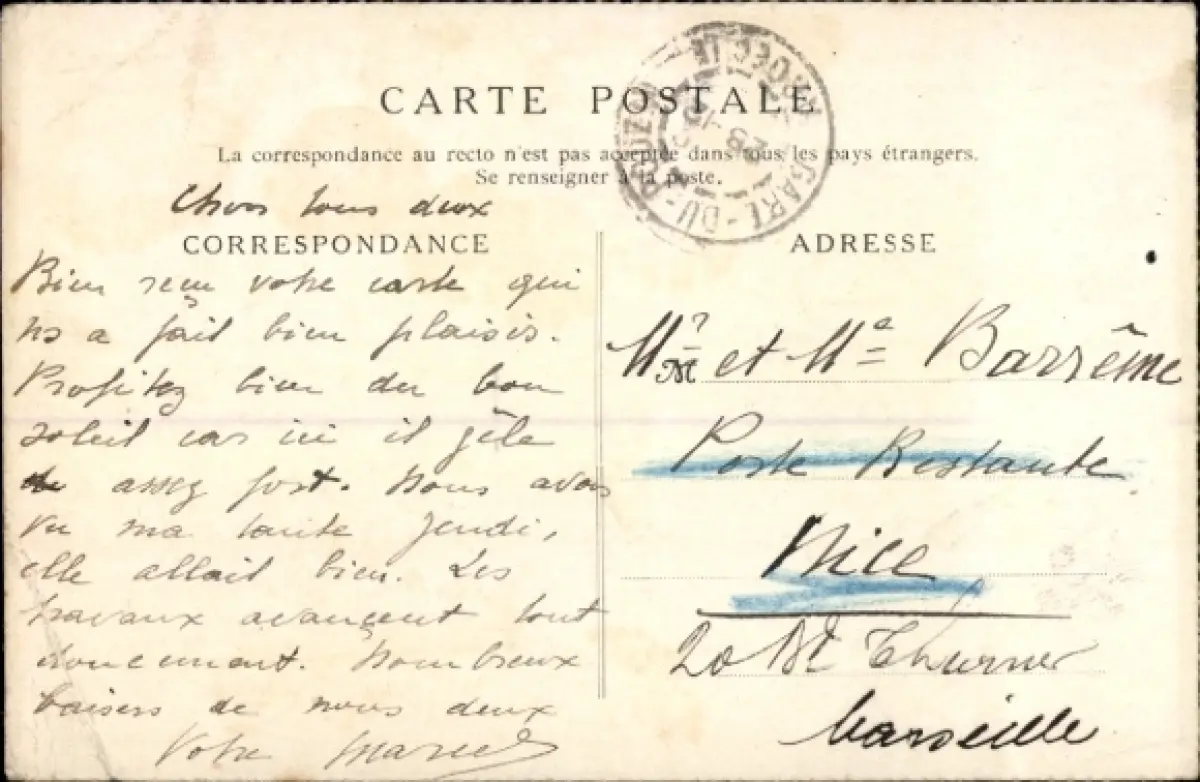 CARTE POSTALE
La correspondance au recto n'est pas acceptée dans tous les pays étrangers.
Se renseigner à la poste.
Chers tous deux
CORRESPONDANCE
Bien reçu votre carte qui
ns a fait bien plaisir.
Profitez bien du bon
soleil car ici il gèle
assez fort. Nous avons
vu ma tante jeudi,
elle allait bien. Les
travaux avancent tout
doucement. Nombreux
baisers de nous deux
Votre Marcel
ADRESSE
Mr et Me Barrême
Poste Restante
Nice
20 Bd Thurner
Marseille
GARE-DU-